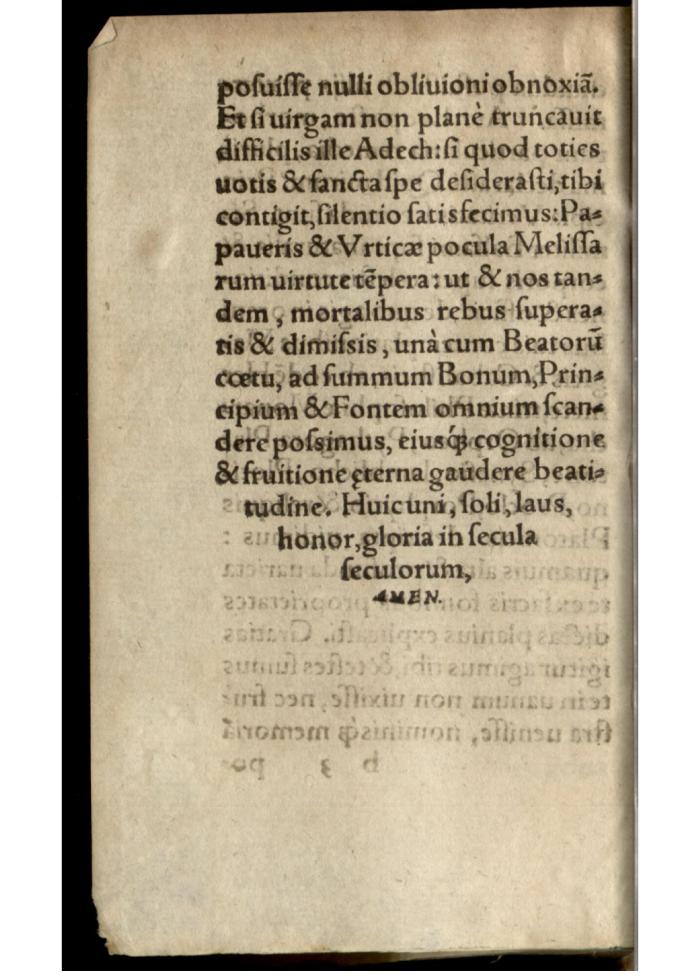 poſuiſſe nulli obliuioni obnoxiã.
Et ſi uirgam non planè truncauit
difficilis ille Adech: ſi quod toties
uotis & ſancta ſpe deſideraſti, tibi
contigit, ſilentio ſatisfecimus: Pa-
paueris & Vrticæ pocula Meliſſa
rum uirtute tẽpera: ut & nos tan-
dem, mortalibus rebus ſupera-
tis & dimiſsis, unà cum Beatorũ
cœtu, ad ſummum Bonum, Prin-
cipium & Fontem omnium ſcan-
dere poſsimus, eiusq́ꝫ cognitione
& fruitione ęterna gaudere beati-
tudine. Huic uni, ſoli, laus,
honor, gloria in ſecula
ſeculorum,
AMEN.